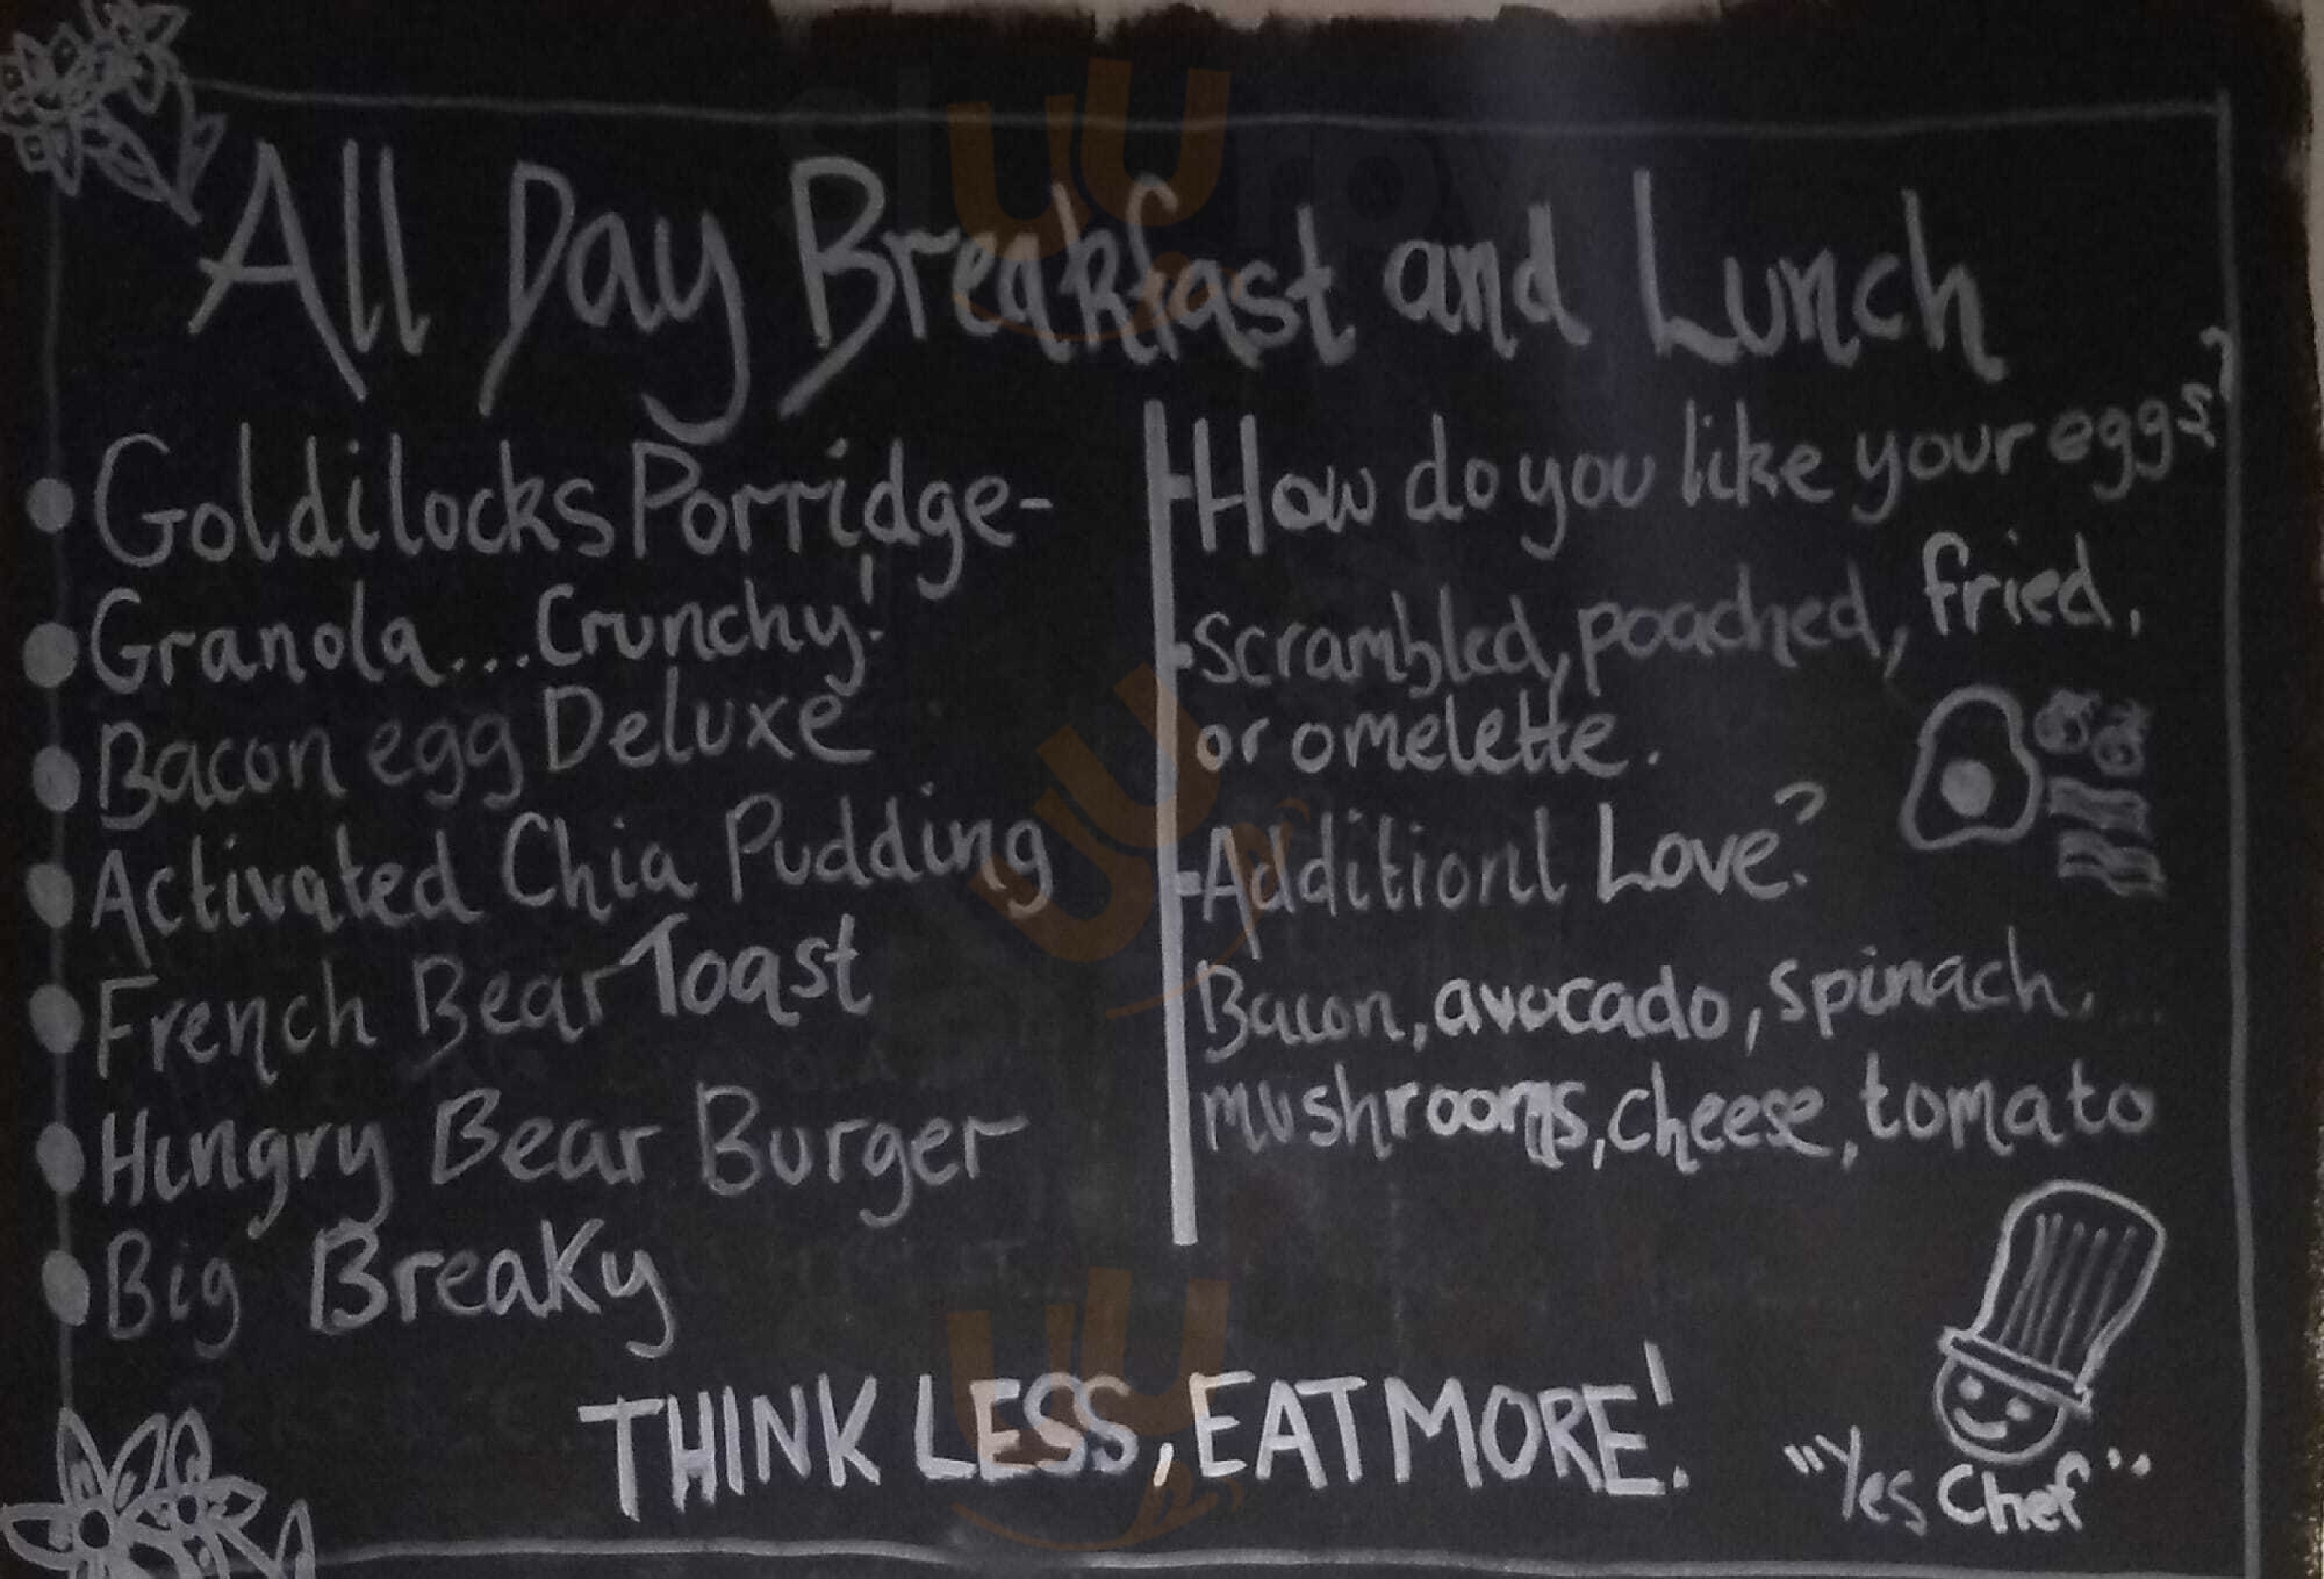 All Day Breakfast and Lunch
Goldilocks Porridge-
Granola...Crunchy!
Bacon egg Deluxe
Activated Chia Pudding
French Bear Toast
Hungry Bear Burger
Big Breaky
How do you like your eggs?
Scrambled, poached, fried,
or omelette.
Additionl Love?
Bacon, avocado, spinach,
mushrooms, cheese, tomato
THINK LESS, EAT MORE!
"Yes Chef"